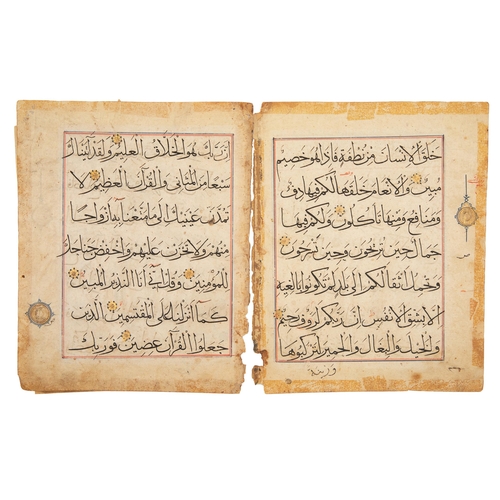 خلق الانسان من نطفة فاذا هو خصيم
مبين والانعام خلقها لكم فيها دفء
ومنافع ومنها تاكلون ولكم فيها
جمال حين تريحون وحين تسرحون
وتحمل اثقالكم الى بلد لم تكونوا بالغيه
الا بشق الانفس ان ربكم لرؤف رحيم
والخيل والبغال والحمير لتركبوها
وزينة
ان ربك هو الخلاق العليم ولقد آتيناك
سبعا من المثاني والقرآن العظيم لا
تمدن عينيك الى ما متعنا به ازواجا
منهم ولا تحزن عليهم واخفض جناحك
للمؤمنين وقل اني انا النذير المبين
كما انزلنا على المقتسمين الذين
جعلوا القرآن عضين فوربك